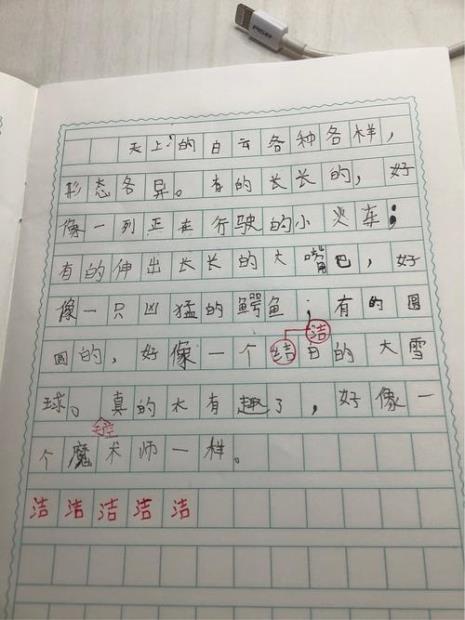 天上的白云各种各样，
形态各异。有的长长的，好
像一列正在行驶的小火车；
有的伸出长长的大嘴巴，好
像一只凶猛的鳄鱼；有的圆
洁
圆的，好像一个结白的大雪
球。真的太有趣了，好像一
个魔术师一样。
洁洁洁洁洁